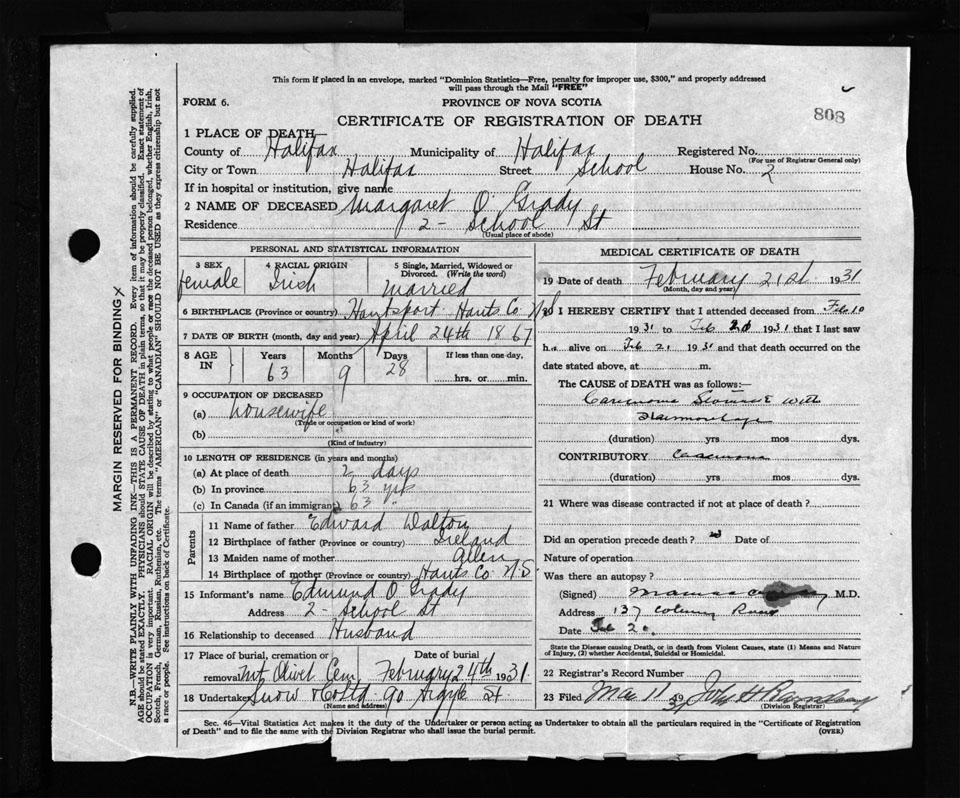 This form if placed in an envelope, marked "Dominion Statistics—Free, penalty for improper use, $300," and properly addressed
will pass through the Mail "FREE"
FORM 6.
PROVINCE OF NOVA SCOTIA
808
CERTIFICATE OF REGISTRATION OF DEATH
1 PLACE OF DEATH—
County of Halifax Municipality of Halifax Registered No.
(For use of Registrar General only)
City or Town Halifax Street School House No. 2
If in hospital or institution, give name
2 NAME OF DECEASED Margaret O. Grady
Residence 2 - School St
(Usual place of abode)
PERSONAL AND STATISTICAL INFORMATION
3 SEX 4 RACIAL ORIGIN 5 Single, Married, Widowed or
Divorced. (Write the word)
female Irish Married
6 BIRTHPLACE (Province or country) Hantsport Hants Co. N.S
7 DATE OF BIRTH (month, day and year) April 24th 1867
8 AGE IN Years Months Days If less than one day,
63 9 28 hrs. or min.
9 OCCUPATION OF DECEASED
(a) housewife
(Trade or occupation or kind of work)
(b)
(Kind of industry)
10 LENGTH OF RESIDENCE (in years and months)
(a) At place of death 2 days
(b) In province 63 yrs
(c) In Canada (if an immigrant) 63 "
Parents
11 Name of father Edward Dalton
12 Birthplace of father (Province or country) Ireland
13 Maiden name of mother Allen
14 Birthplace of mother (Province or country) Hants Co N.S.
15 Informant's name Edmund O Grady
Address 2 - School St
16 Relationship to deceased Husband
17 Place of burial, cremation or Date of burial
removal Mt. Olivet Cem. February 24th 1931
18 Undertaker Snow & Co Ltd 90 Argyle St
(Name and address)
MEDICAL CERTIFICATE OF DEATH
19 Date of death February 21st 1931
(Month, day and year)
20 I HEREBY CERTIFY that I attended deceased from Feb 10
1931 to Feb 1931 that I last saw
h alive on Feb 1931 and that death occurred on the
date stated above, at m.
The CAUSE of DEATH was as follows:—
Carcinoma Stomach with
Haemorrhage
(duration) yrs mos dys.
CONTRIBUTORY
(duration) yrs mos dys.
21 Where was disease contracted if not at place of death?
Did an operation precede death? Date of
Nature of operation
Was there an autopsy?
(Signed) M.D.
Address 137
Date Feb
State the Disease causing Death, or in death from Violent Causes, state (1) Means and Nature
of Injury, (2) whether Accidental, Suicidal or Homicidal.
22 Registrar's Record Number
23 Filed Mar 11 31 John H
(Division Registrar)
Sec. 46—Vital Statistics Act makes it the duty of the Undertaker or person acting as Undertaker to obtain all the particulars required in the "Certificate of Registration
of Death" and to file the same with the Division Registrar who shall issue the burial permit.
(OVER)
MARGIN RESERVED FOR BINDING
N.B.—WRITE PLAINLY WITH UNFADING INK—THIS IS A PERMANENT RECORD. Every item of information should be carefully supplied.
AGE should be stated EXACTLY. PHYSICIANS should STATE CAUSE OF DEATH in plain terms, so that it may be properly classified. Exact statement of
OCCUPATION is very important. RACIAL ORIGIN will be described by stating to what people or race the deceased person belonged, whether English, Irish,
Scotch, French, German, Russian, Ruthenian, etc. The terms "AMERICAN" or "CANADIAN" SHOULD NOT BE USED as they express citizenship but not
a race or people. See instructions on back of Certificate.